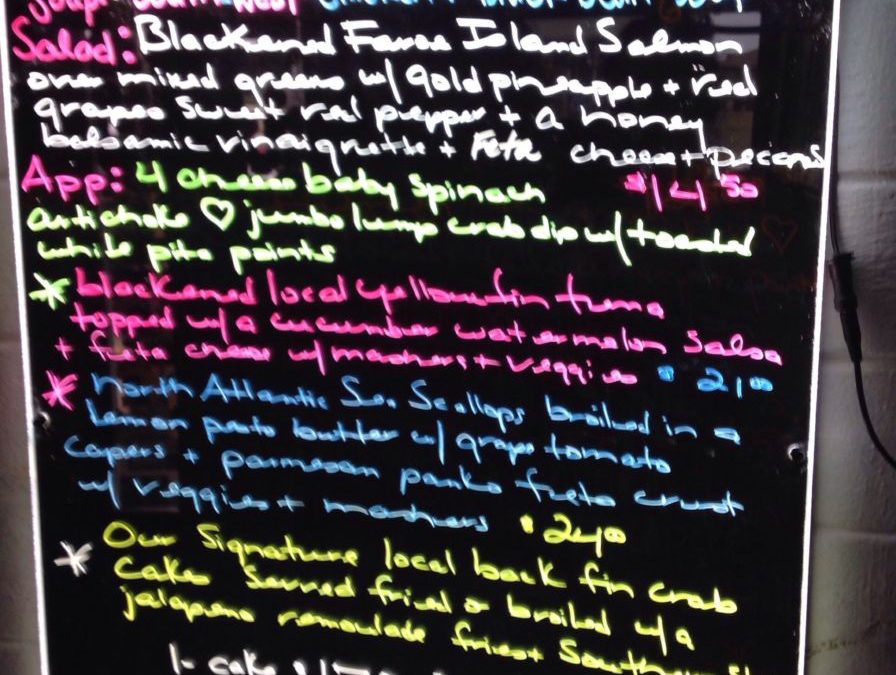 Soup: Southwest Chicken
Salad: Blackened Faroe Island Salmon
over mixed greens w/ gold pineapple + red
grapes sweet red pepper + a honey
balsamic vinaigrette + Feta cheese + pecans
App: 4 cheese baby spinach $14 50
artichoke ♡ jumbo lump crab dip w/ toasted
white pita points
* blackened local yellowfin tuna
topped w/ a cucumber watermelon salsa
+ feta cheese w/ mashers + veggies
* North Atlantic Sea Scallops broiled in a
lemon pesto butter w/ grape tomato
capers + parmesan panko crust
w/ veggies + mashers
* Our Signature local back fin crab
cakes served fried or broiled w/ a
jalapeno remoulade fries +
1- cake